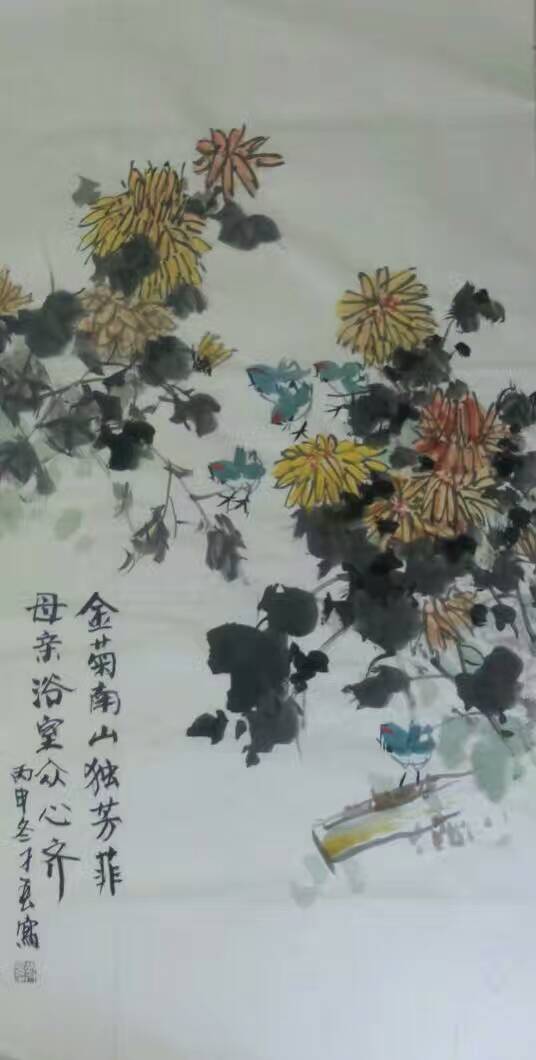 金菊南山独芳菲
母亲浴室众心齐
丙申冬于夏写